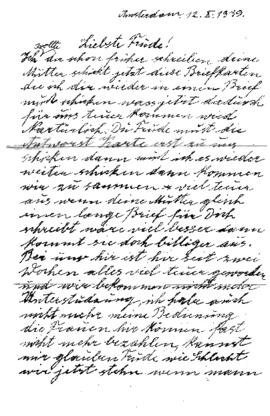 Amsterdam 12. X. 1939.
Liebste Friede!
wollte
Ich dir schon früher schreiben deine
Mutter schickt jetzt diese Briefkarten
die ich dir wieder in einen Brief
muss schicken was jetzt dadurch
für uns teuer kommen wird
Natürlich. Du Friede musst die
Antwort Karte erst zu mir
schicken dann wird ich es wieder
weiter schicken dann kommen
wir zu sammen viel teuer
aus wenn deine Mutter gleich
einen lange Brief für Dich
schreibt wäre viel besser dann
kommt sie doch billiger aus.
Bei uns hir ist hir seit zwei
Wochen alles viel teuer geworden
und wir bekommen nicht mehr
Unterstützung, ich habe auch
nicht mehr meine Bedienung
die Frauen hir können fast
nicht mehr bezahlen, kannst
mir glauben Friede wie schlecht
wir jetzt stehn wenn mann